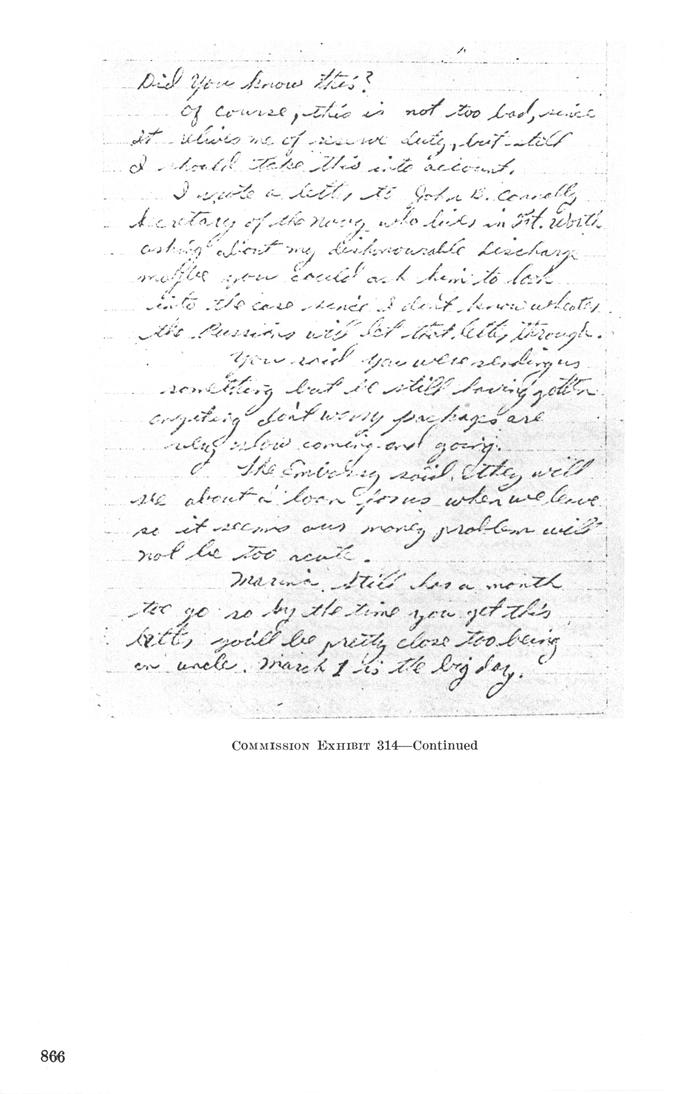 Did you know this?
Of course, this is not too bad, since
it relives me of reserve duty, but still
I should take this into account.
I wrote a letter to John B. Connally
Secretary of the navy who lives in Ft. Worth
asking about my dishonourable discharge
maybe you could ask him to look
into the case since I don't know wheater
the Russians will let that letter through.
You said you were sending us
something but ie still having gotten
anyeting don't worry packages are
very slow coming and going.
The Embassy said they will
see about a loan for us when we leave
so it seems our money problem will
not be too acute.
Marina still has a month
too go so by the time you get this
letter you'll be pretty close too being
an uncle. March 1 is the big day.
COMMISSION EXHIBIT 314—Continued
866